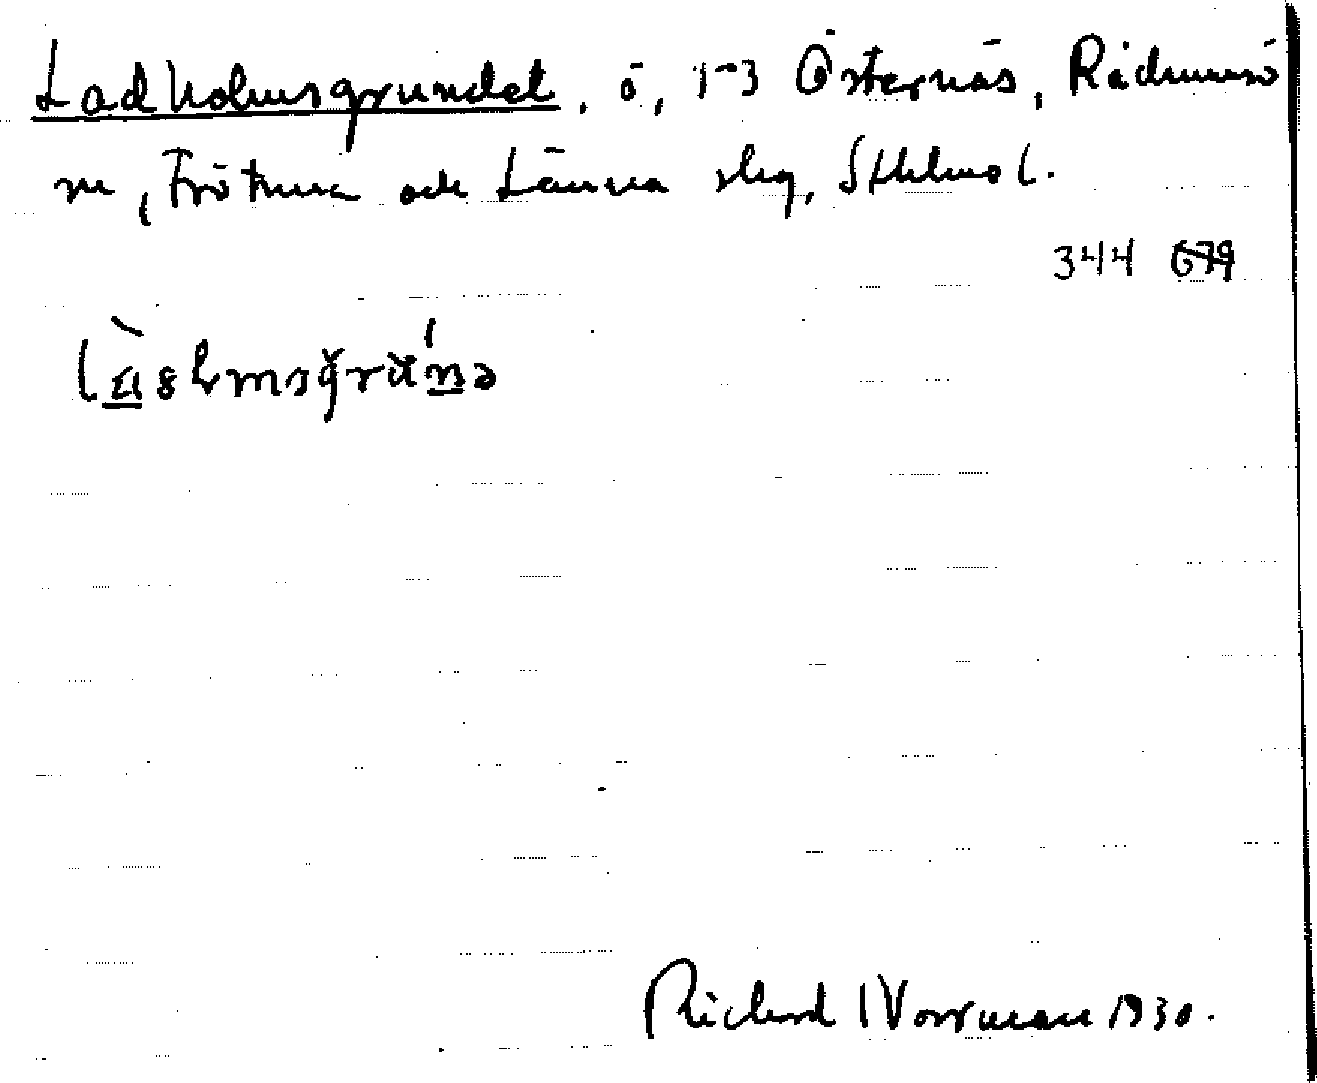 Ladholmsgrundet, ö, 1-3 Östernäs, Rådmansö
sn, Frötuna och Länna skg, Sthlms l.
344 679
Richard Norrman 1930.